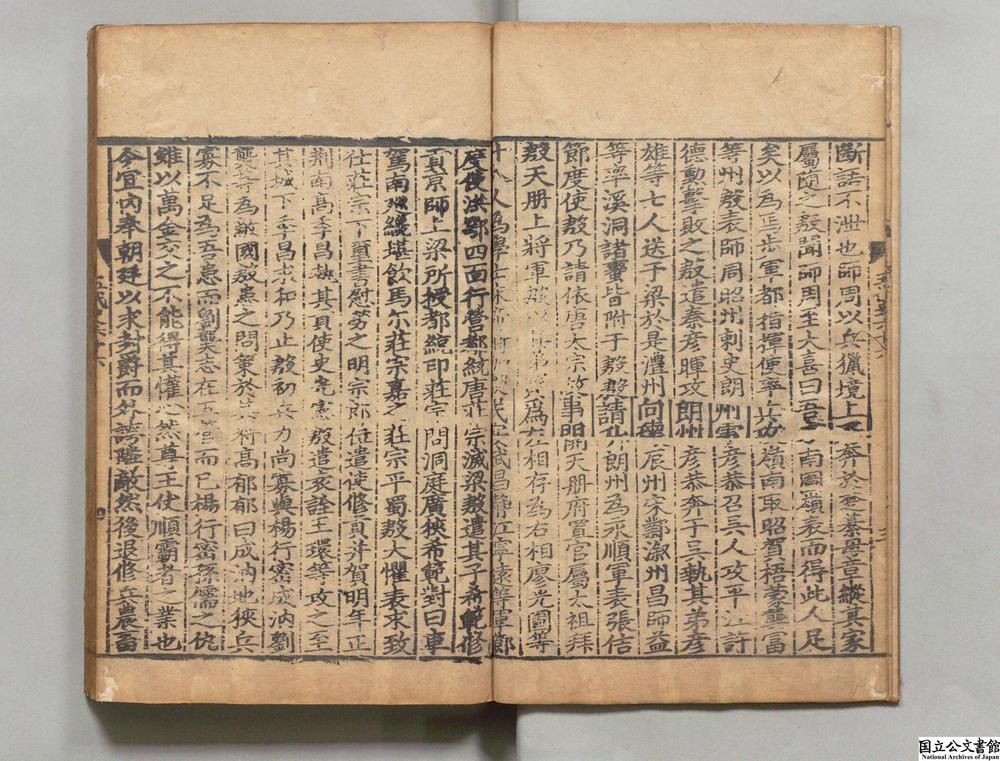 斷語不泄也師周以兵獵境上 奔於楚綦毋章縱其家
屬隨之殷聞師周至大喜曰吾 南圖嶺表而得此人足
矣以為馬步軍都指揮使率兵攻嶺南取昭賀梧蒙龔富
等州殷表師周昭州刺史朗州 彥恭召三人攻平江許
德勳擊敗之殷遣秦彥暉攻朗州彥恭奔于 執其弟彥
雄等七人送于梁於是澧州向瓌辰州宋鄴漵州昌師益
等率溪洞諸蠻皆附于殷殷請升朗州為永順軍表張佶
節度使殷乃請依唐太宗故事開天册府置官屬太祖拜
殷天册上將軍殷以其弟 為左相存為右相廖光圖等
十八人為學士末帝 武昌靜江寧遠等軍節
度使洪鄂四面行營都統唐莊宗滅梁殷遣其子希範修
貢京師上梁所授都統印莊宗問洞庭廣狹希範對曰車
駕南巡纔堪飲馬尔莊宗嘉之莊宗平蜀殷大懼表求致
仕莊宗下璽書慰勞之明宗即位遣使修貢并賀明年正
荆南高季昌執其貢使史光憲殷遣袁詮王環等攻之至
其城下季昌求和乃止殷初兵力尚寡與楊行密成汭劉
龑等為敵國殷患之問策於其將高郁郁曰成汭地狹兵
寡不足為吾患而劉龑志在五管而已楊行密孫儒之仇
雖以萬金交之不能得其懽心然尊王仗順霸者之業也
今宜内奉朝廷以求封爵而外誇隣敵然後退修兵農畜
国立公文書館
National Archives of Japan